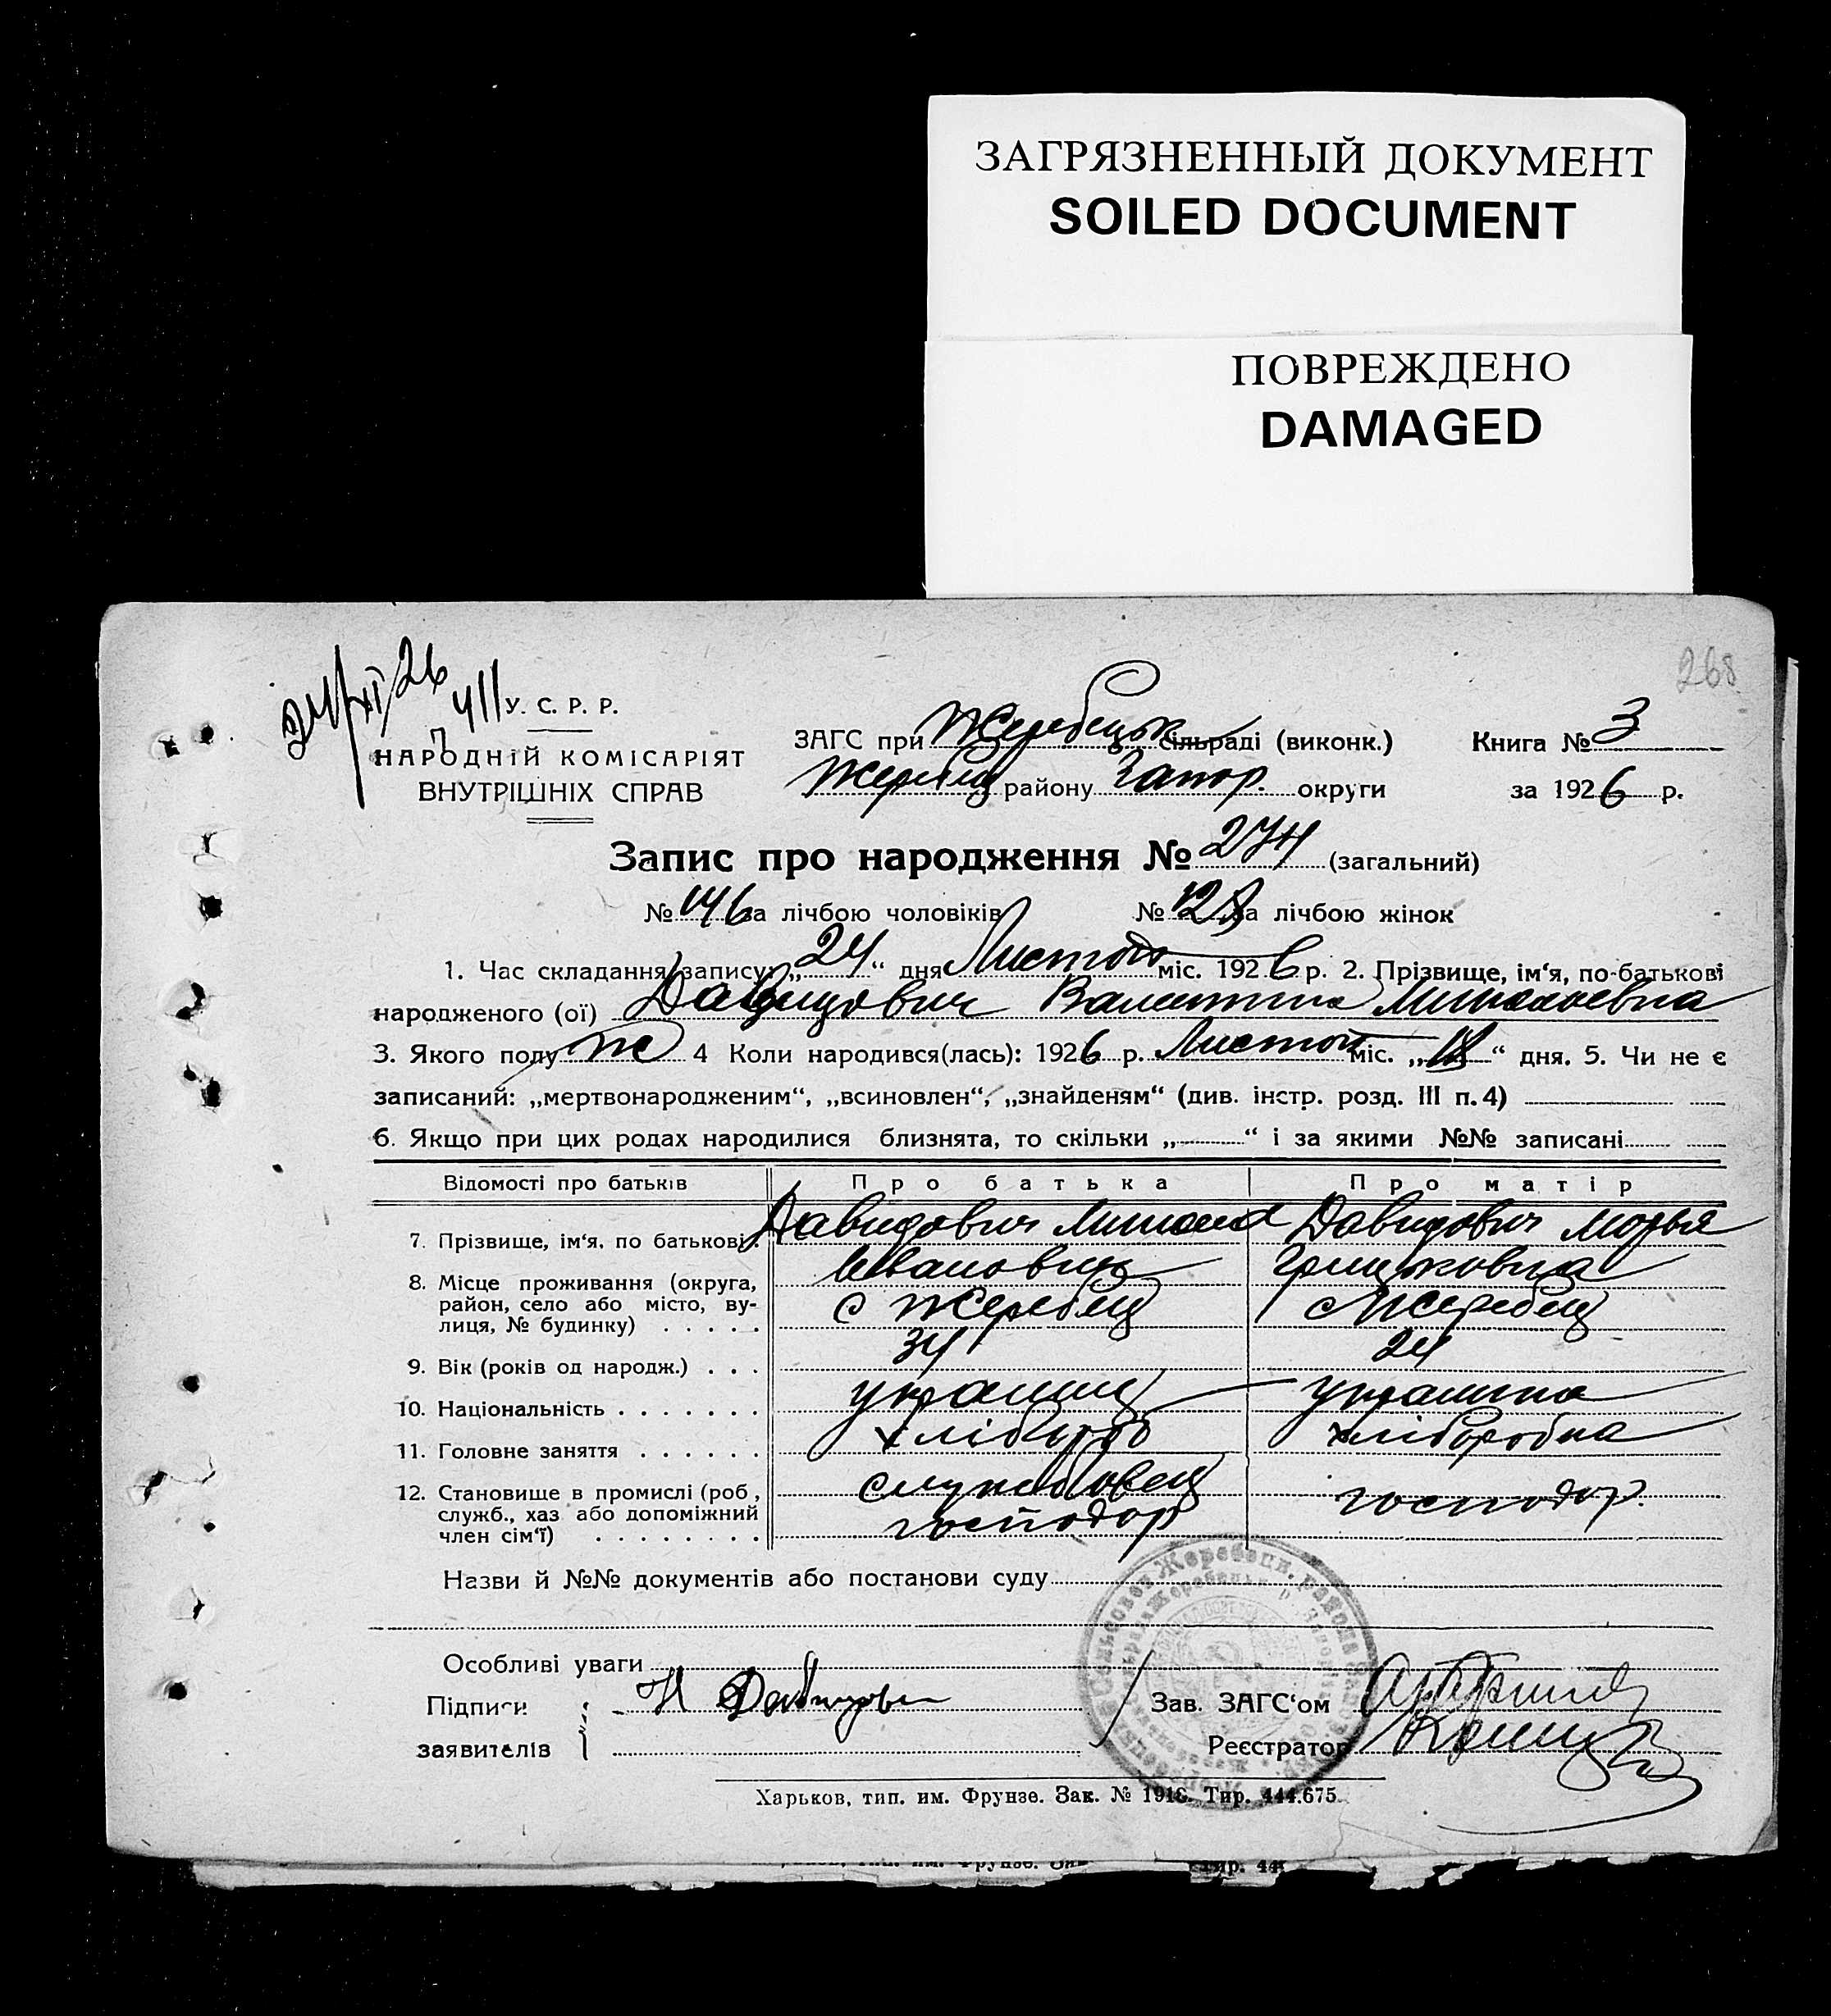 ЗАГРЯЗНЕННЫЙ ДОКУМЕНТ
SOILED DOCUMENT
ПОВРЕЖДЕНО
DAMAGED
268
24/XI/26
У. С. Р. Р.
НАРОДНІЙ КОМІСАРІЯТ
ВНУТРІШНІХ СПРАВ
ЗАГС при Жеребецьк сільраді (виконк.) Книга № 3
Жеребец району Запор. округи за 1926 р.
Запис про народження № 274 (загальний)
№ 146 за лічбою чоловіків № 128 за лічбою жінок
1. Час складання запису: „24“ дня Листопо міс. 1926 р. 2. Прізвище, ім‘я, по-батькові
народженого (ої) Давидович Валентина Михайлевна
3. Якого полу ж 4 Коли народився(лась): 1926 р. Листоп міс. „18“ дня. 5. Чи не є
записаний: „мертвонародженим“, „всиновлен“, „знайденям“ (див. інстр. розд. III п. 4)
6. Якщо при цих родах народилися близнята, то скільки „ “ і за якими №№ записані
Відомості про батьків Про батька Про матір
7. Прізвище, ім‘я, по батькові. Давидович Михаил Давидович Марья
Иванович
8. Місце проживання (округа,
район, село або місто, ву-
лиця, № будинку) . . . . . с Жеребец с Жеребец
9. Вік (років од народж.) . . . 34 24
10. Національність . . . . . . . украинец украинка
11. Головне заняття . . . . . . хлібороб хлиборобка
12. Становище в промислі (роб,
служб., хаз або допоміжний
член сім‘ї) . . . . . . . . службовец господар господар.
Назви й №№ документів або постанови суду
Особливі уваги
Підписи
заявителів
Зав. ЗАГС‘ом
Реєстратор
Харьков, тип. им. Фрунзе. Зак. № 1918. Тир. 444.675.